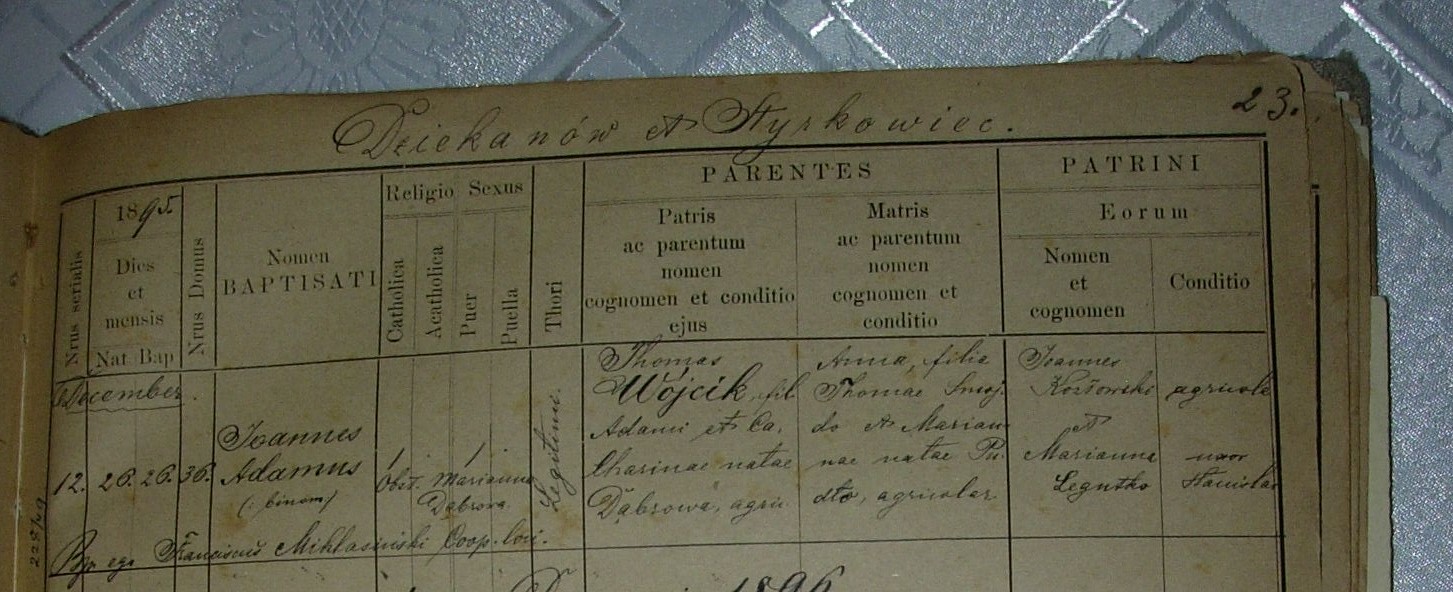 23.
Dziekanów et Styrkowiec.
Nrus serialis
1895.
Dies
et
mensis
Nat. Bap
Nrus Domus
Nomen
BAPTISATI
Religio
Catholica
Acatholica
Sexus
Puer
Puella
Thori
PARENTES
Patris
ac parentum
nomen
cognomen et conditio
ejus
Matris
ac parentum
nomen
cognomen et
conditio
PATRINI
Eorum
Nomen
et
cognomen
Conditio
December.
12.
26. 26.
36.
Joannes
Adamus
(: binom)
Obst. Marianna
Dąbrowa.
Legitimi.
Thomas
Wójcik, fil.
Adami et Ca,
tharinae natae
Dąbrowa, agric.
Anna, filia
Thomae Smoj.
do et Marian
nae natae Pu.
dło, agricolar.
Joannes
Kozłowski
et
Marianna
Legutko
agricola
uxor
Stanislai
Bap. ego Franciscus Miklasiński Coop. loci.
1896